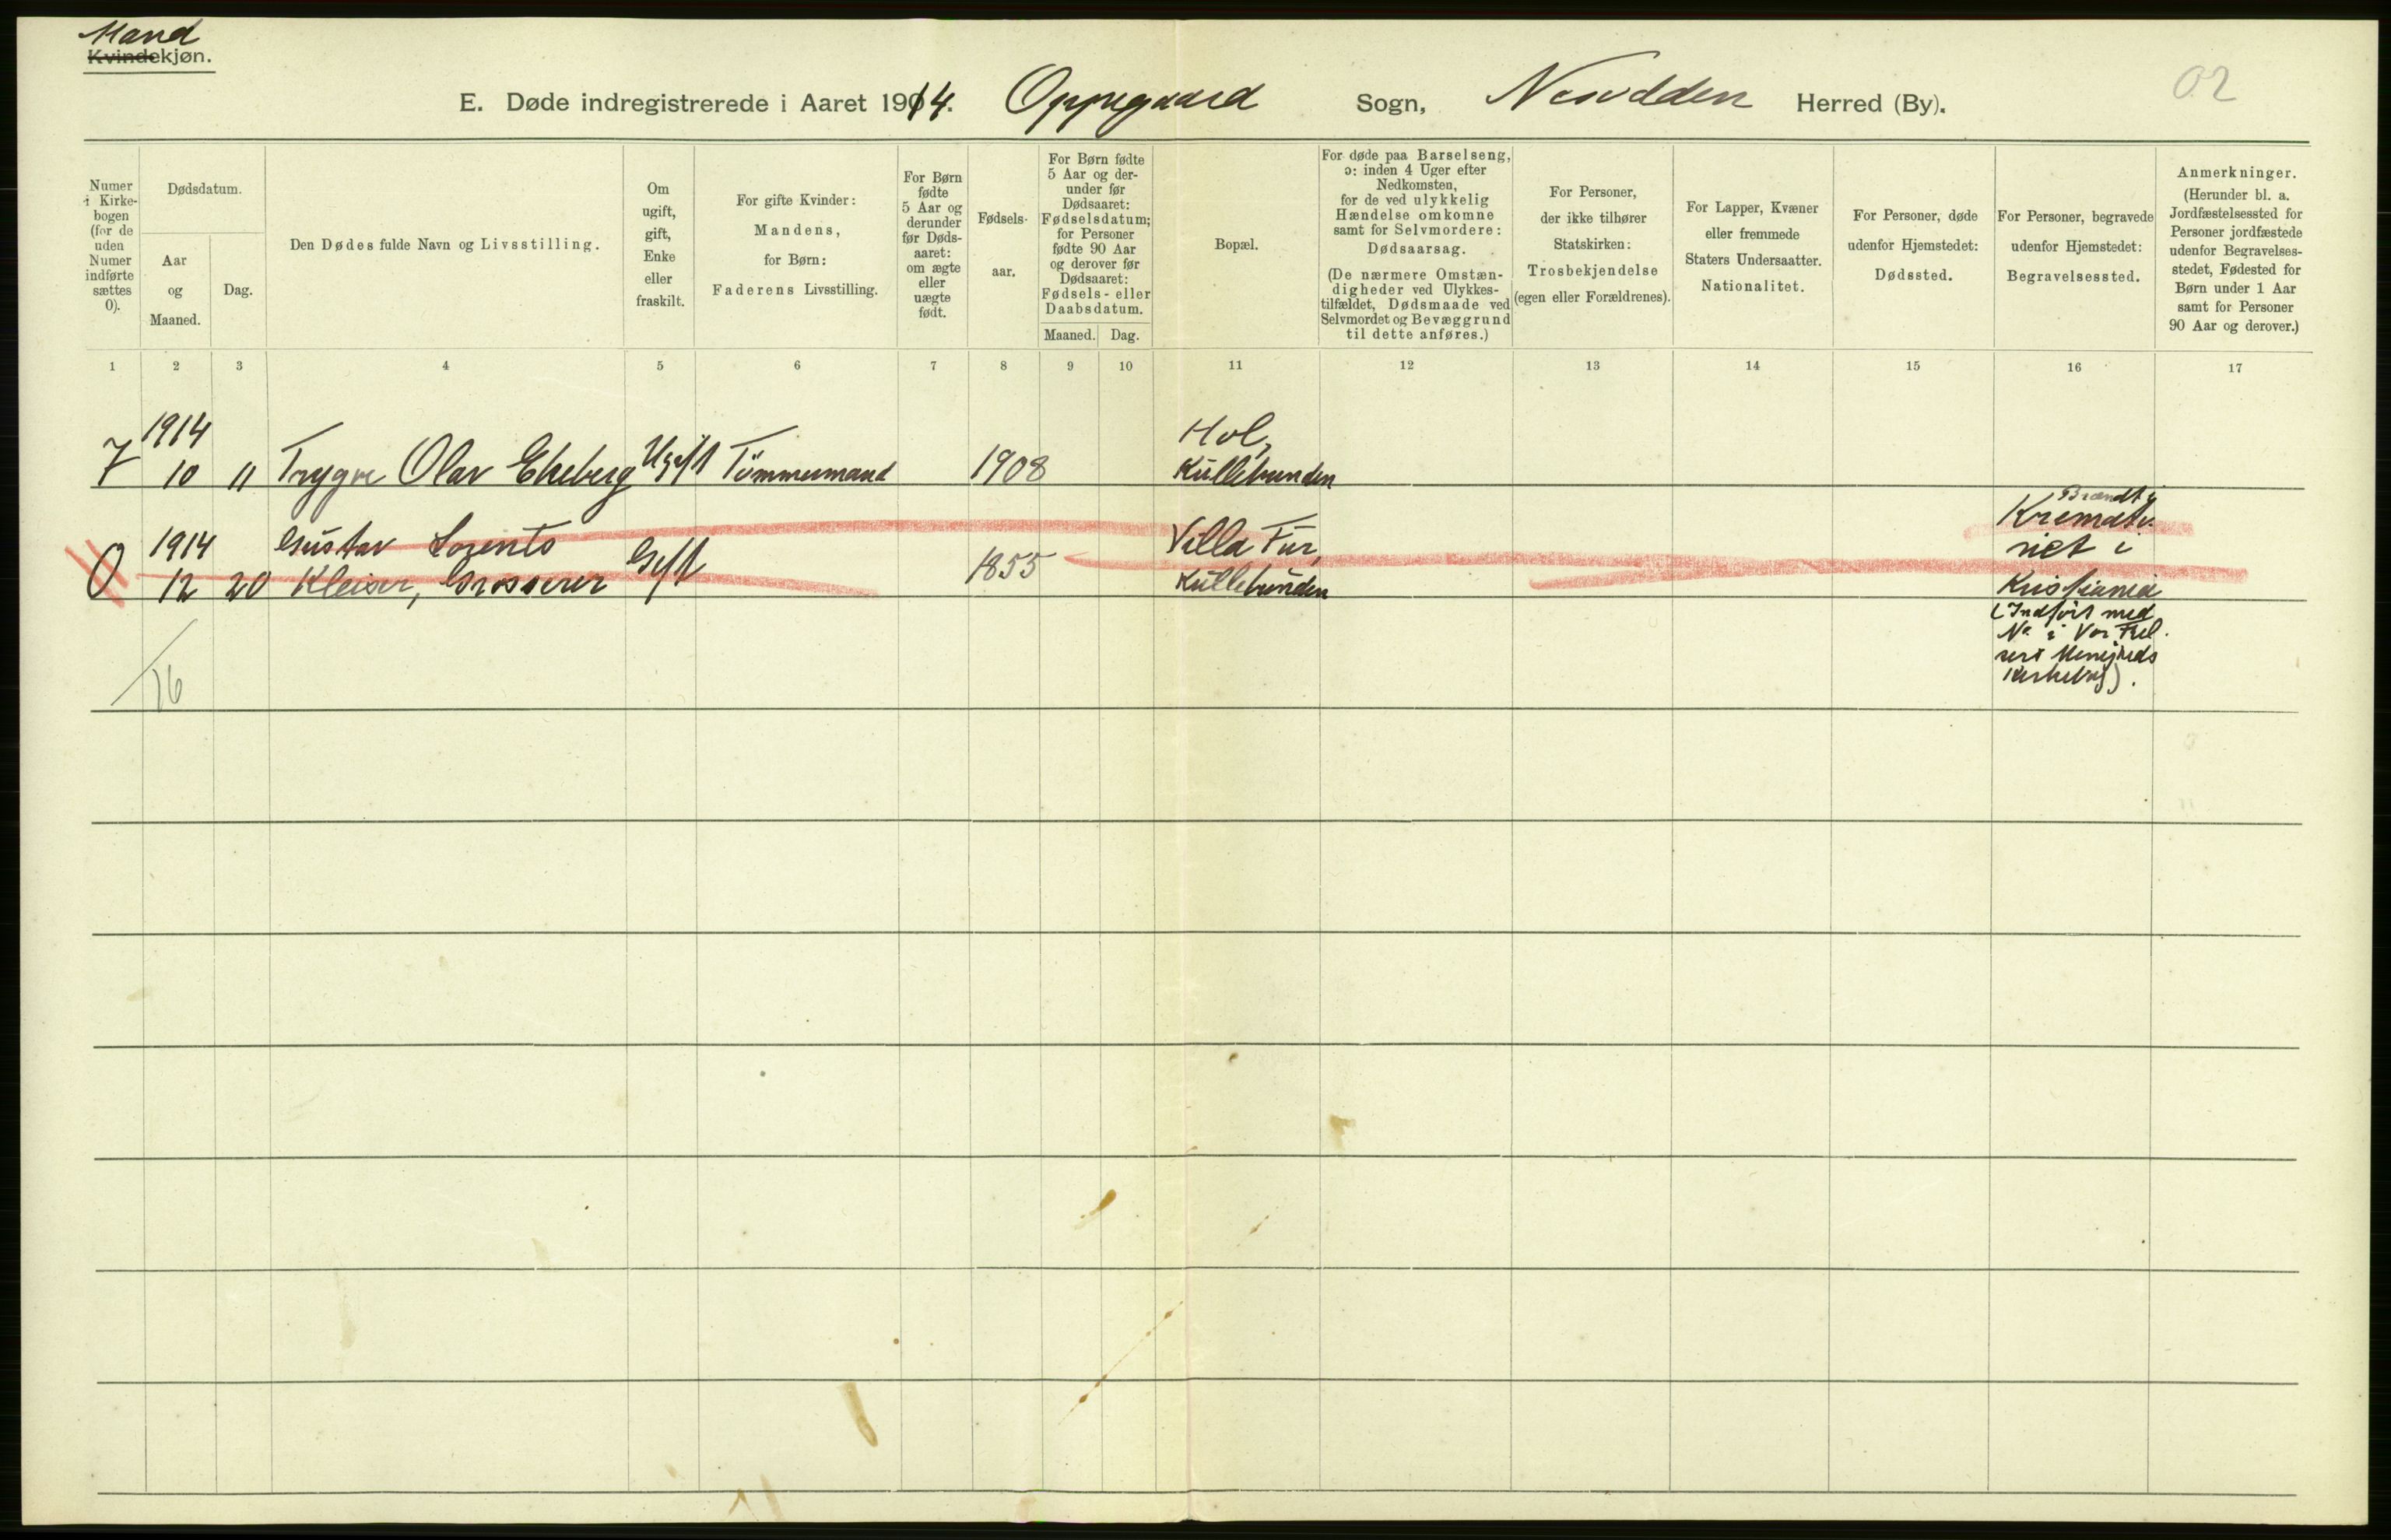 Mand
Kvindekjøn.
E. Døde indregistrerede i Aaret 1914. Oppegaard Sogn, Nesodden Herred (By).
02
Numer
i Kirke-
bogen
(for de
uden
Numer
indførte
sættes
0).
Dødsdatum.
Aar
og
Maaned.
Dag.
Den Dødes fulde Navn og Livsstilling.
Om
ugift,
gift,
Enke
eller
fraskilt.
For gifte Kvinder:
Mandens,
for Børn:
Faderens Livsstilling.
For Børn
fødte
5 Aar og
derunder
før Døds-
aaret:
om ægte
eller
uægte
født.
Fødsels-
aar.
For Børn fødte
5 Aar og der-
under før
Dødsaaret:
Fødselsdatum;
for Personer
fødte 90 Aar
og derover før
Dødsaaret:
Fødsels- eller
Daabsdatum.
Maaned. Dag.
Bopæl.
For døde paa Barselseng,
ɔ: inden 4 Uger efter
Nedkomsten,
for de ved ulykkelig
Hændelse omkomne
samt for Selvmordere:
Dødsaarsag.
(De nærmere Omstæn-
digheder ved Ulykkes-
tilfældet, Dødsmaade ved
Selvmordet og Bevæggrund
til dette anføres.)
For Personer,
der ikke tilhører
Statskirken:
Trosbekjendelse
(egen eller Forældrenes).
For Lapper, Kvæner
eller fremmede
Staters Undersaatter.
Nationalitet.
For Personer, døde
udenfor Hjemstedet:
Dødssted.
For Personer, begravede
udenfor Hjemstedet:
Begravelsessted.
Anmerkninger.
(Herunder bl. a.
Jordfæstelsessted for
Personer jordfæstede
udenfor Begravelses-
stedet, Fødested for
Børn under 1 Aar
samt for Personer
90 Aar og derover.)
1 2 3 4 5 6 7 8 9 10 11 12 13 14 15 16 17
1914 Hol,
7 10 11 Trygve Olav Ekeberg Ugift Tømmermand 1908 Kullebunden
Brændt i
1914 Gustav Lorents Gift 1855 Villa Fur, Kremato-
riet i
0 12 20 Kleiser, Grosserer Kullebunden Kristiania
(Indført med
No i Vor Frel-
sers Menigheds
Kirkebog).
16